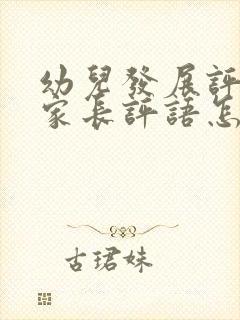 幼兒發展評
家長評語怎
古珺妹